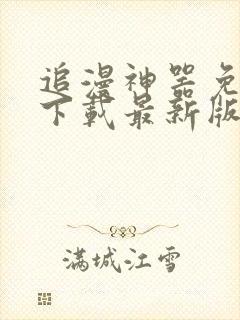 追漫神器免
下载最新版
满城江雪